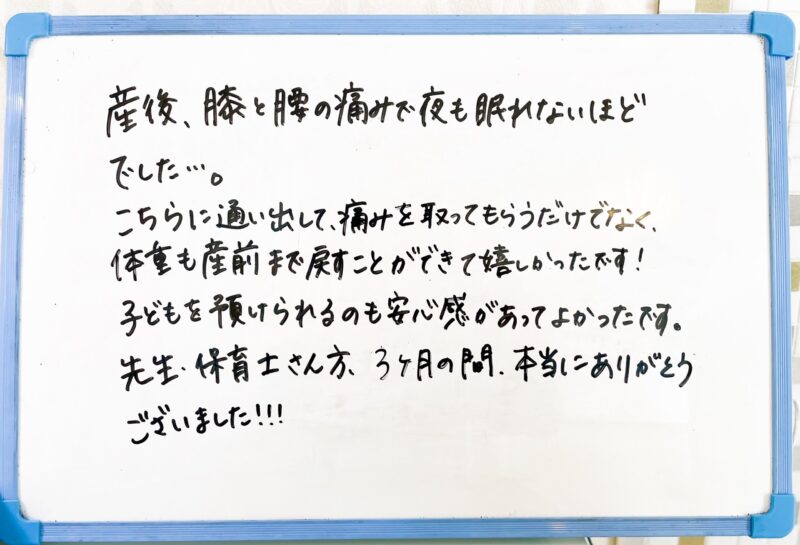 産後、膝と腰の痛みで夜も眠れないほど
でした…。
こちらに通い出して、痛みを取ってもらうだけでなく、
体重も産前まで戻すことができて嬉しかったです!
子どもを預けられるのも安心感があってよかったです。
先生・保育士さん方、3ヶ月の間、本当にありがとう
ございました!!!